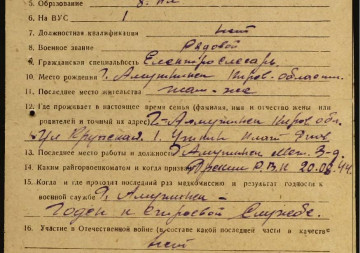 5. Образование 8. кл
6. На ВУС 1
7. Должностная квалификация нет
8. Военное звание Рядовой
9. Гражданская специальность Електрослесарь.
10. Место рождения г. Омутнинск Киров. области.
11. Последнее место жительства там-же
12. Где проживает в настоящее время семья (фамилия, имя и отчество жены или
родителей и точный их адрес) г. Омутнинск Киров обл.
13. Последнее место работы и должность Омутнинск Мет. З-д
14. Каким райгорвоенкоматом и когда призван РВК 20.08.44.
15. Когда и где проходил последний раз медкомиссию и результат годности к
военной службе г. Омутнинск -
Годен к строевой службе.
16. Участие в Отечественной войне (в составе какой последней части и качеств
нет